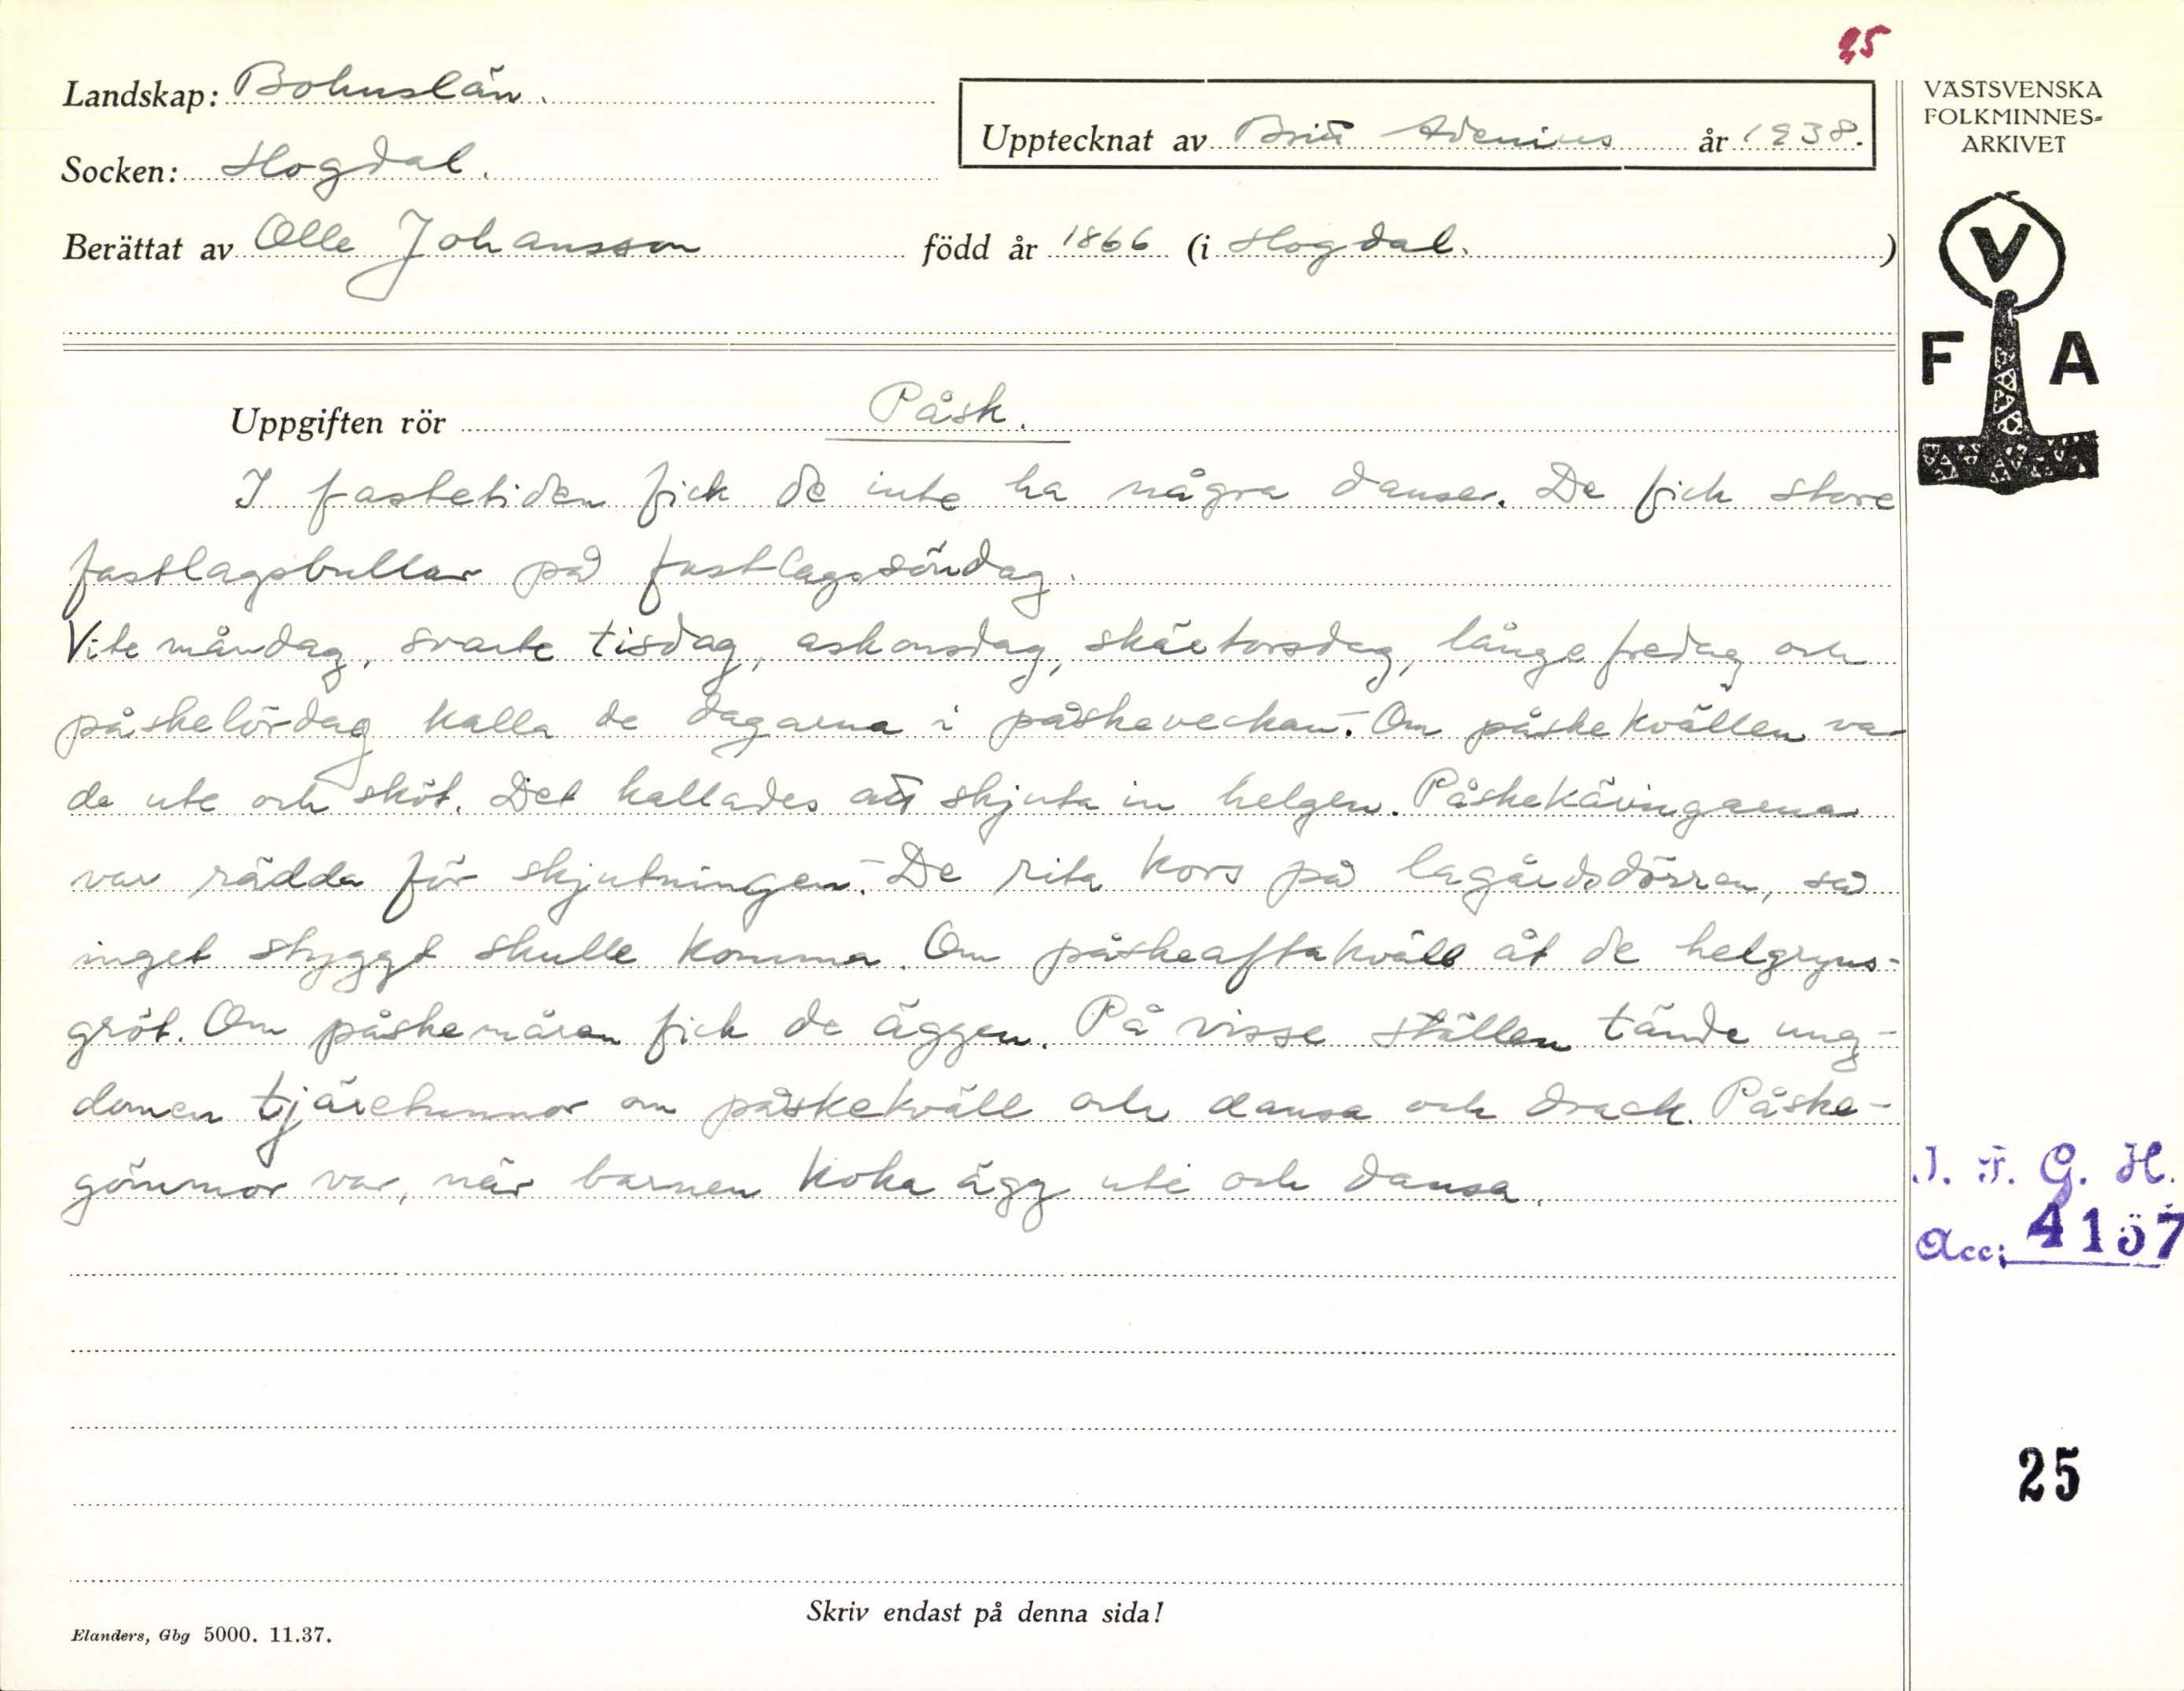 25
Landskap: Bohuslän.
Socken: Hogdal.
Upptecknat av Britt Adenius år 1938.
Berättat av Olle Johansson född år 1866 (i Hogdal. )
VÄSTSVENSKA
FOLKMINNES-
ARKIVET
V
F A
Uppgiften rör Påsk.
I fastetiden fick de inte ha några danser. De fick store
fastlagsbullar på fastlagssöndag.
Vite måndag, svarte tisdag, askonsdag, skäretorsdag, långefredag och
påskelördag kalla de dagarna i påskeveckan. - Om påskekvällen var
de ute och sköt. Det kallades att skjuta in helgen. Påskekäringarna
var rädda för skjutningen. - De rita kors på lagårdsdörren, så
inget styggt skulle komma. Om påskeaftakväll åt de helgryns-
gröt. Om påskemåren fick de äggen. På visse ställen tände ung-
domen tjäretunnor om påskekväll och dansa och drack. Påske-
gömmor var, när barnen koka ägg ute och dansa.
I. F. G. H.
Acc: 4157
25
Skriv endast på denna sida!
Elanders, Gbg 5000. 11.37.